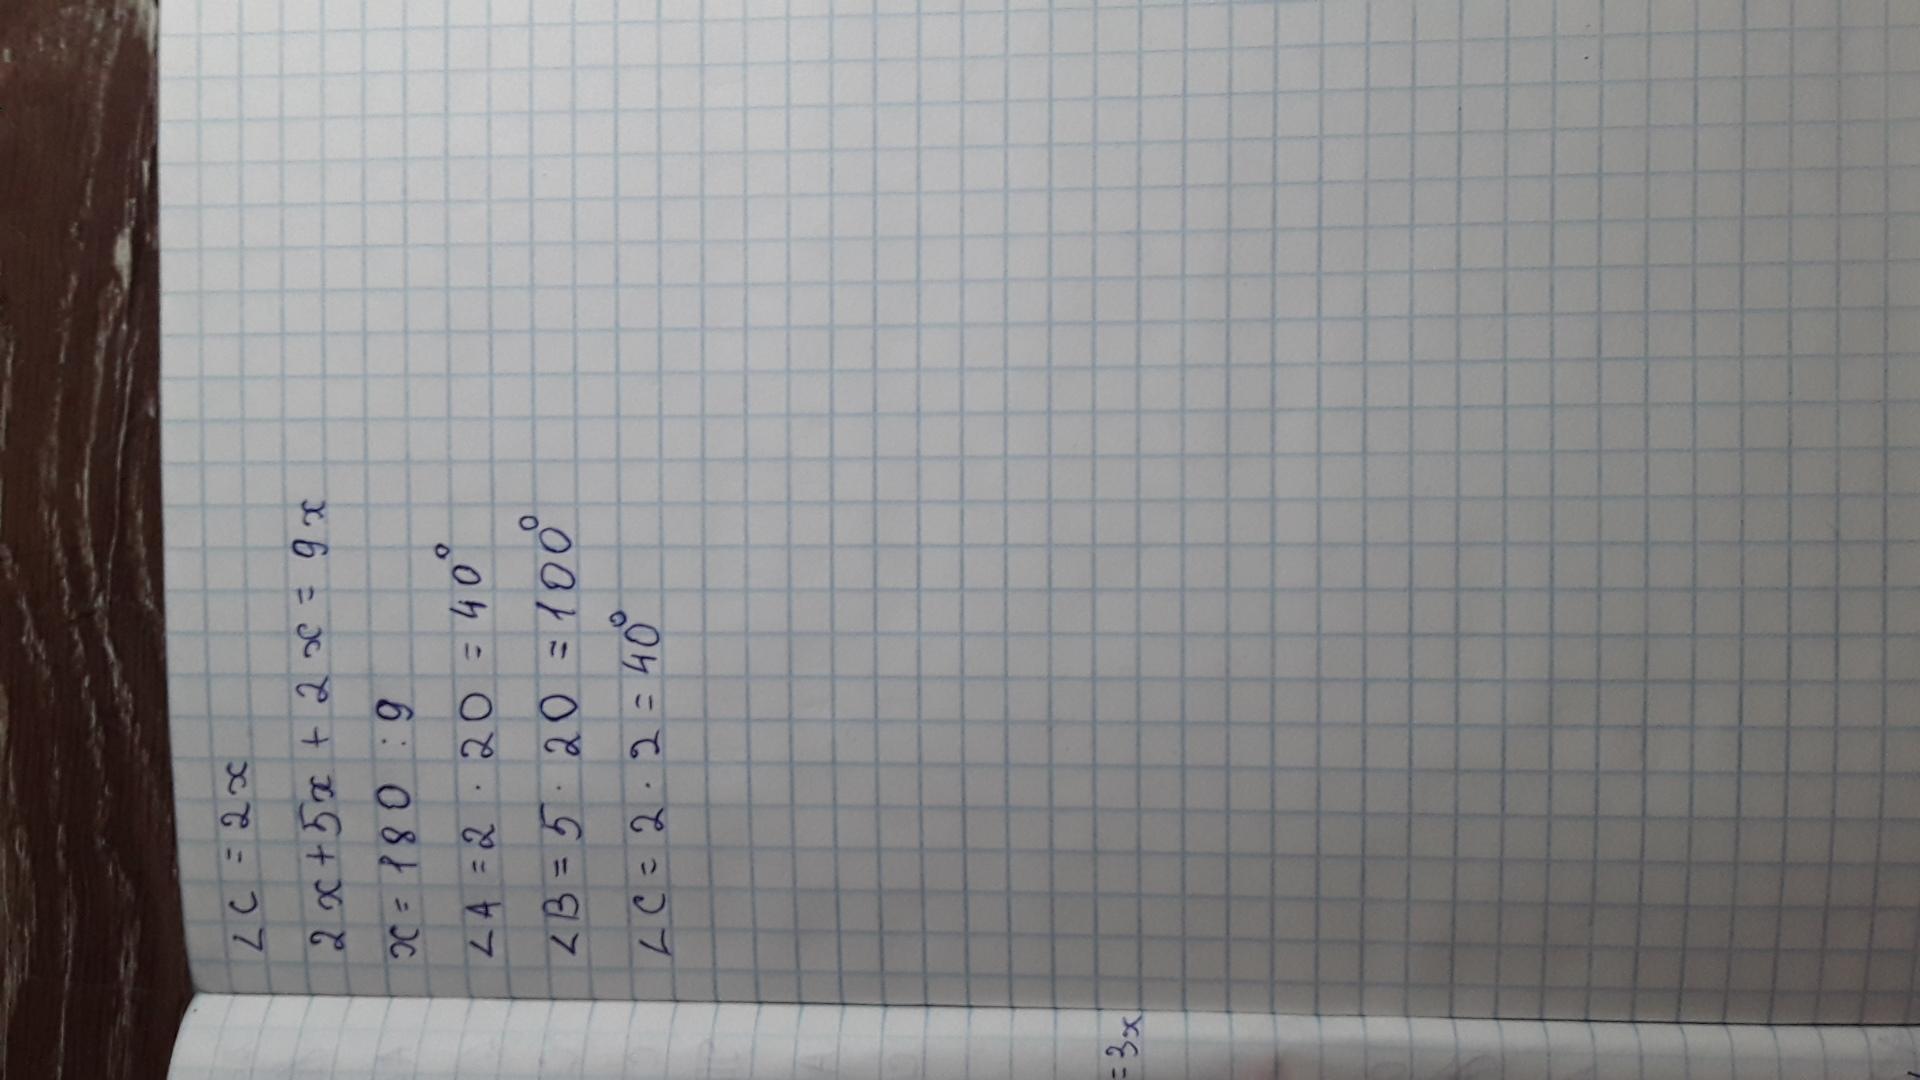 ∠C = 2x
2x+5x+2x=9x
x=180:9
∠A=2·20=40°
∠B=5·20=100°
∠C=2·2=40°
=3x